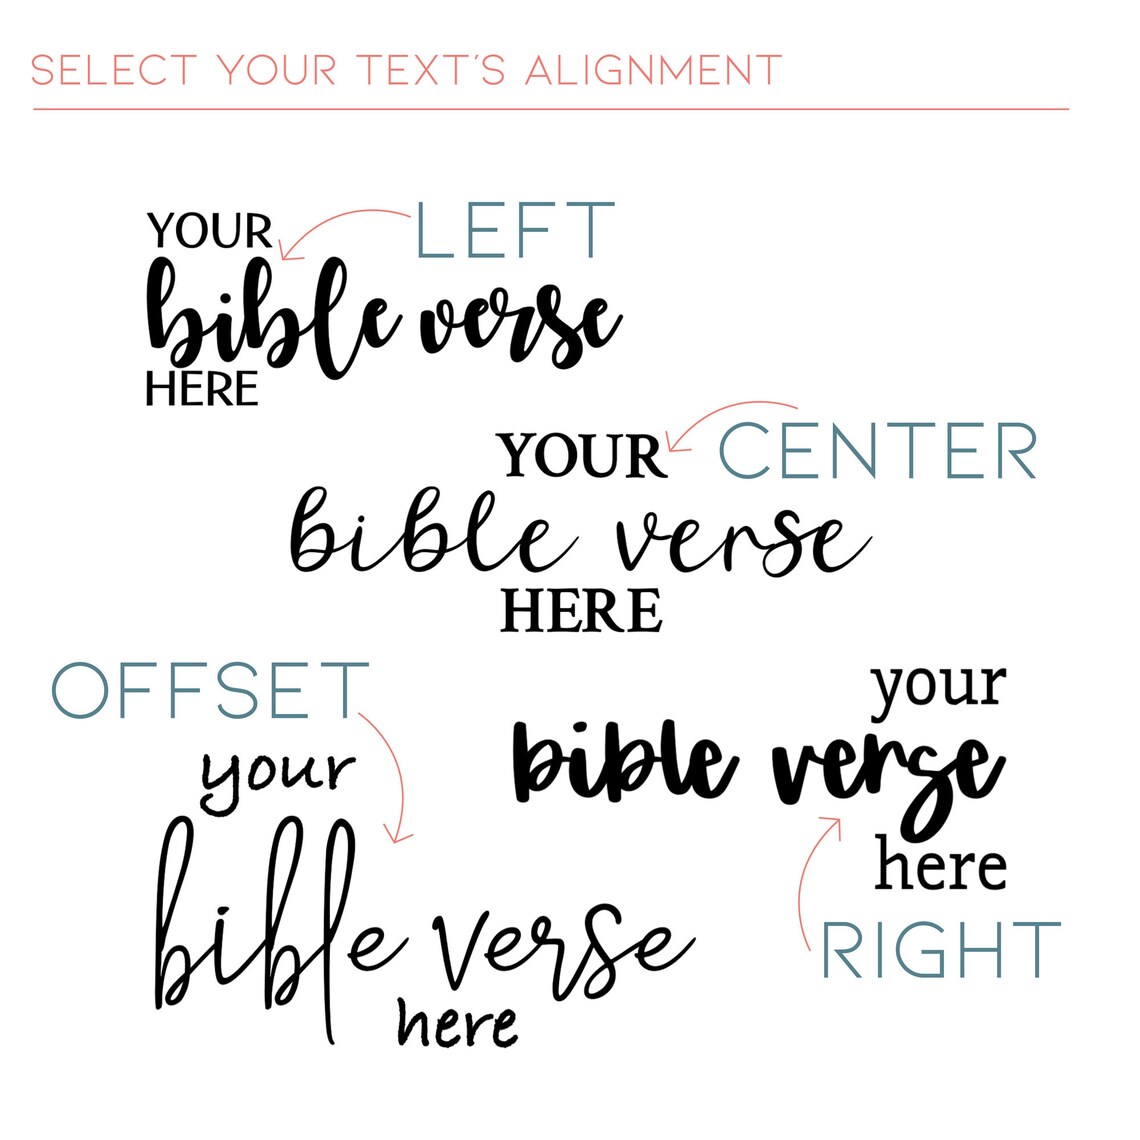 SELECT YOUR TEXT'S ALIGNMENT
LEFT
YOUR
bible verse
HERE
CENTER
YOUR
bible verse
HERE
OFFSET
your
bible verse
here
your
bible verse
here
RIGHT